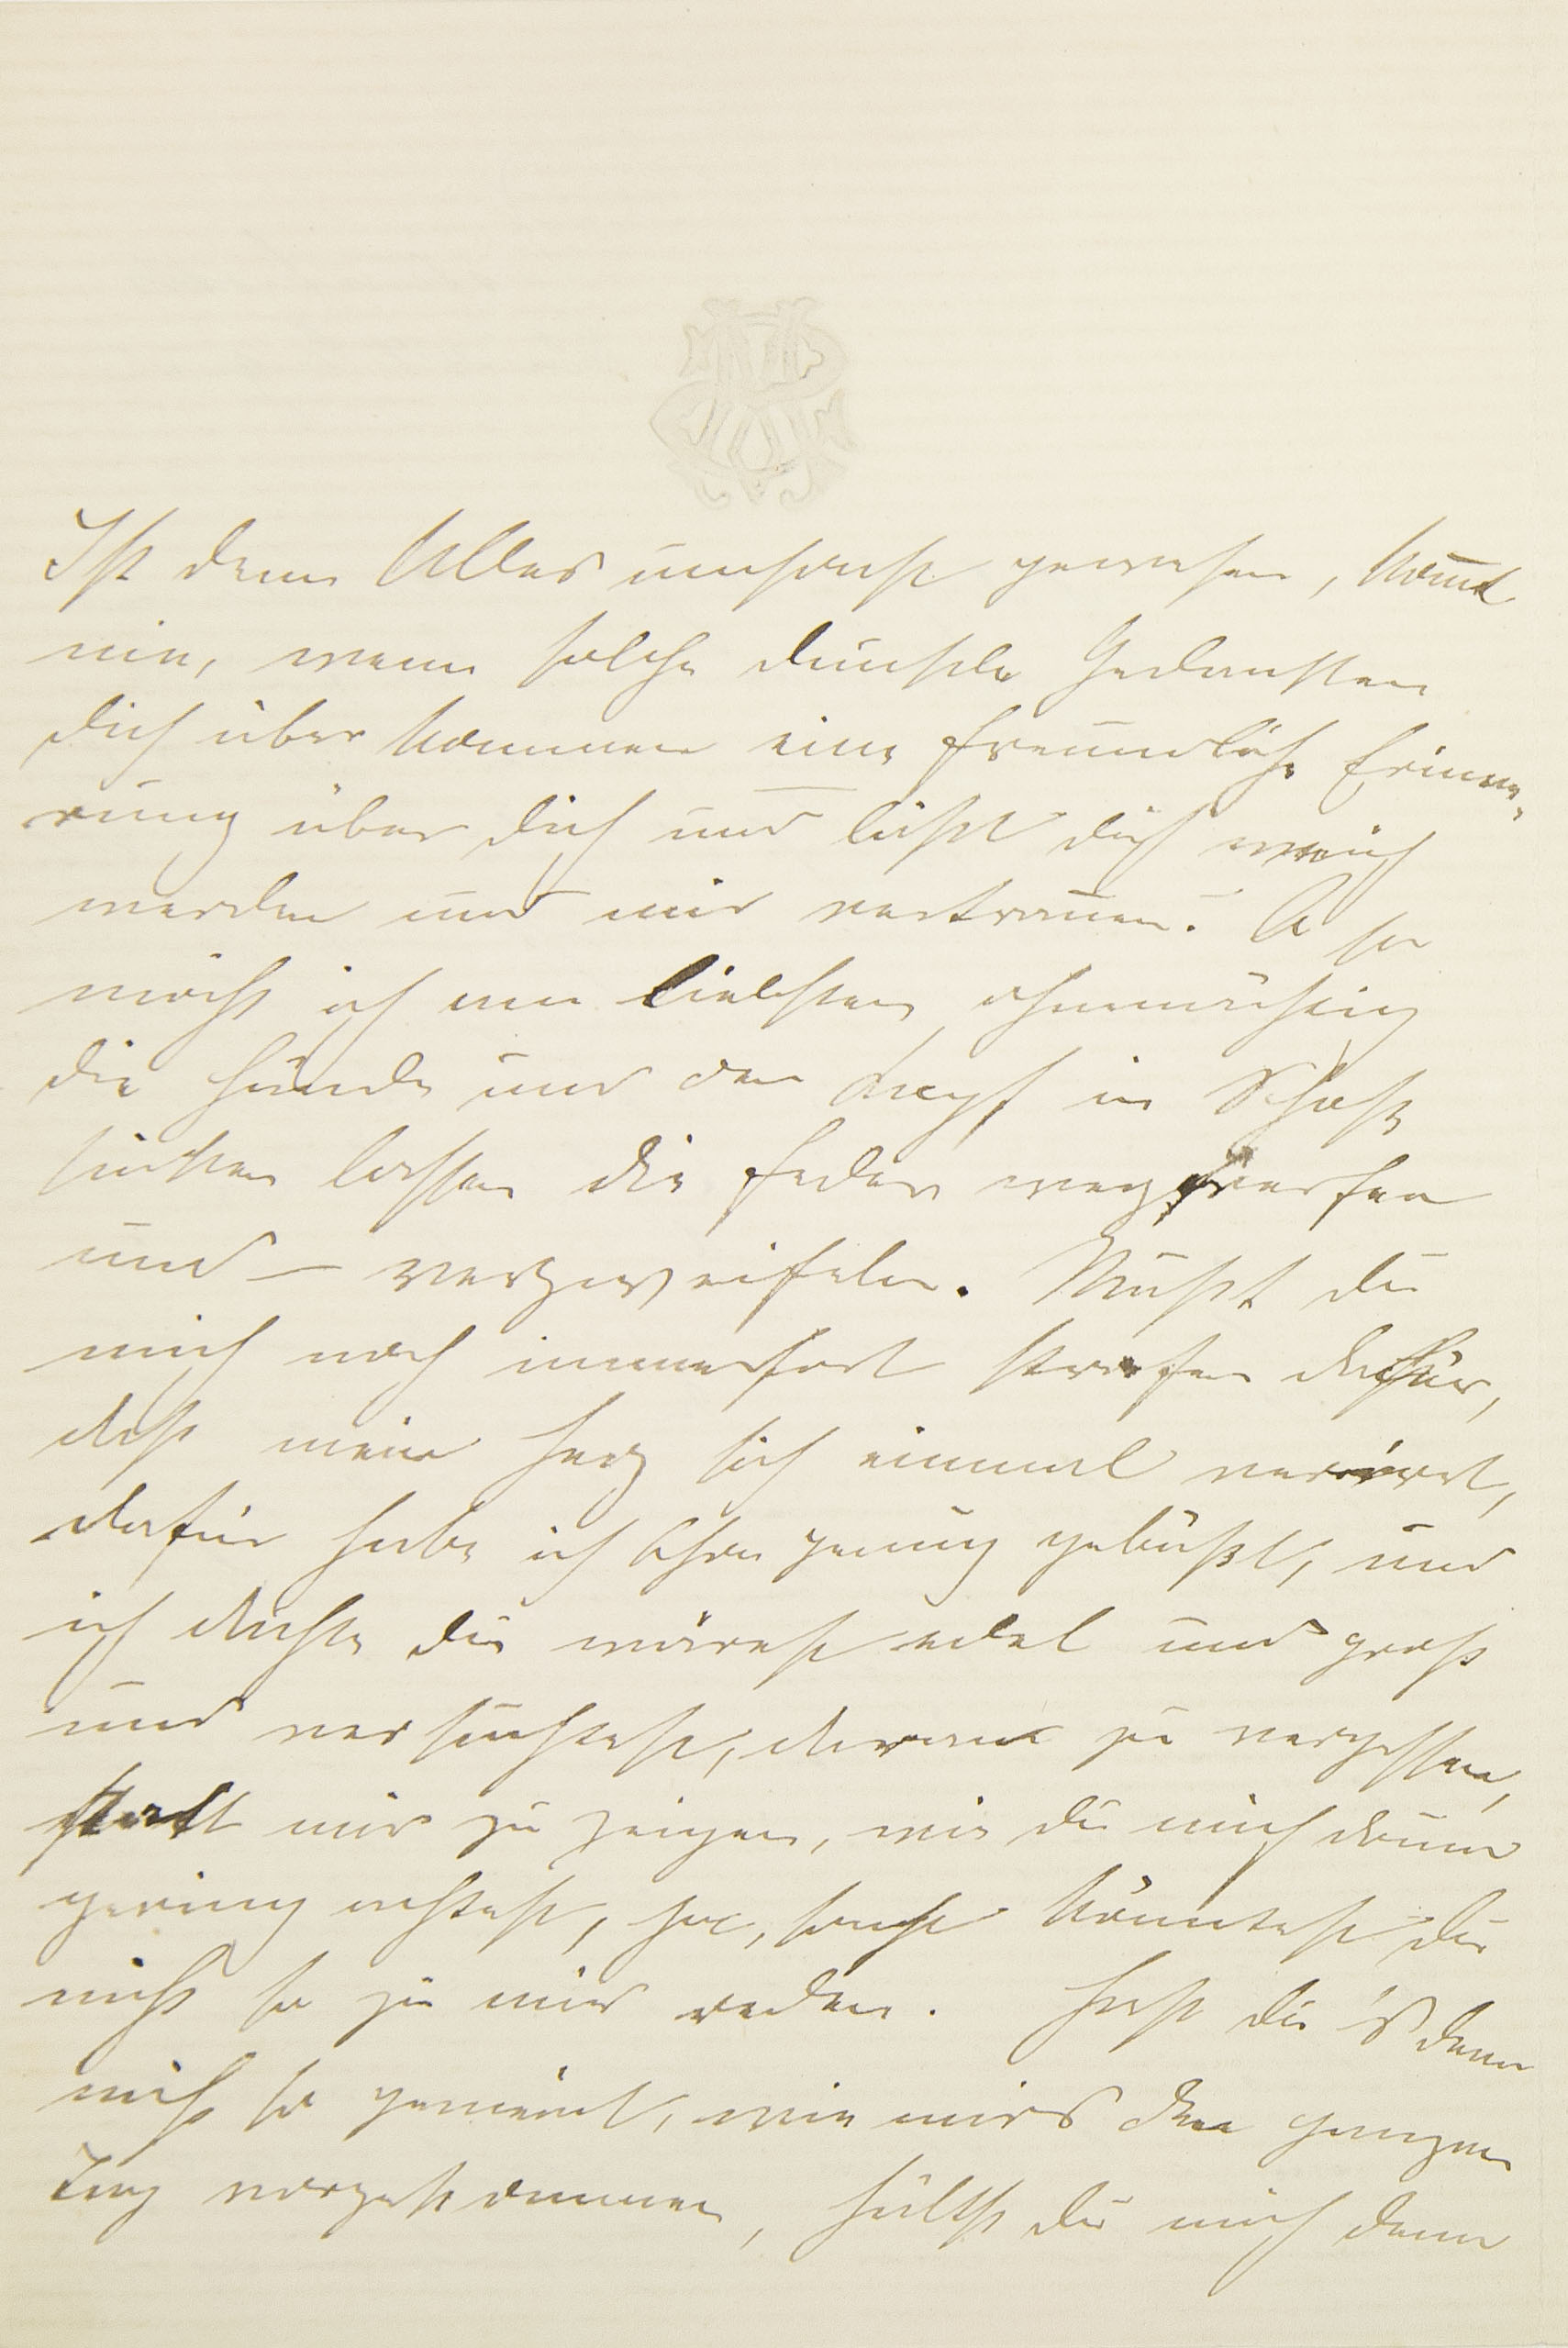 Ist denn Alles umsonst gewesen, kom̄t
nie, wenn solche dunkle Gedanken
dich überkommen eine freundliche Erinne-
rung über dich und läßt dich weich
werden und mir vertrauen? O so
möcht ich am liebsten ohnmächtig
die Hände und den Kopf in Schooß
sinken lassen die Feder wegwerfen
und — verzweifeln. Mußt du
mich noch immerfort strafen dafür,
daß mein Herz sich einmal verirrt,
dafür habe ich schon genug gebüßt, und
ich dachte du wärest edel und groß
und versuchtest, daran zu vergessen,
statt mir zu zeigen, wie du mich drum
gering achtest, ja, sonst könntest du
nicht so zu mir reden. Hast du's denn
nicht so gemeint, wie mirs den ganzen
Tag vorgekommen, hältst du mich denn